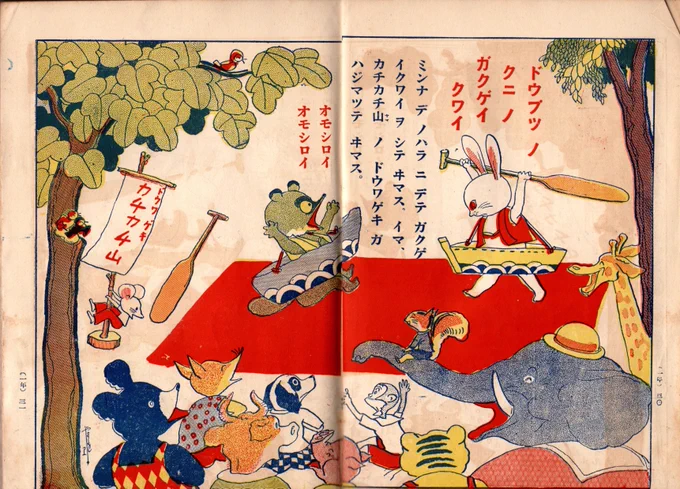 ドウブツ ノ
クニ ノ
ガクゲイ
クワイ
ミンナ デ ノハラ ニ デテ ガクゲ
イクワイ ヲ シテ ヰマス、イマ、
カチカチ山 ノ ドウワゲキ ガ
ハジマツテ ヰマス。
オモシロイ
オモシロイ
ドウワゲキ
カチカチ山
(二年) 30
(一年) 三一